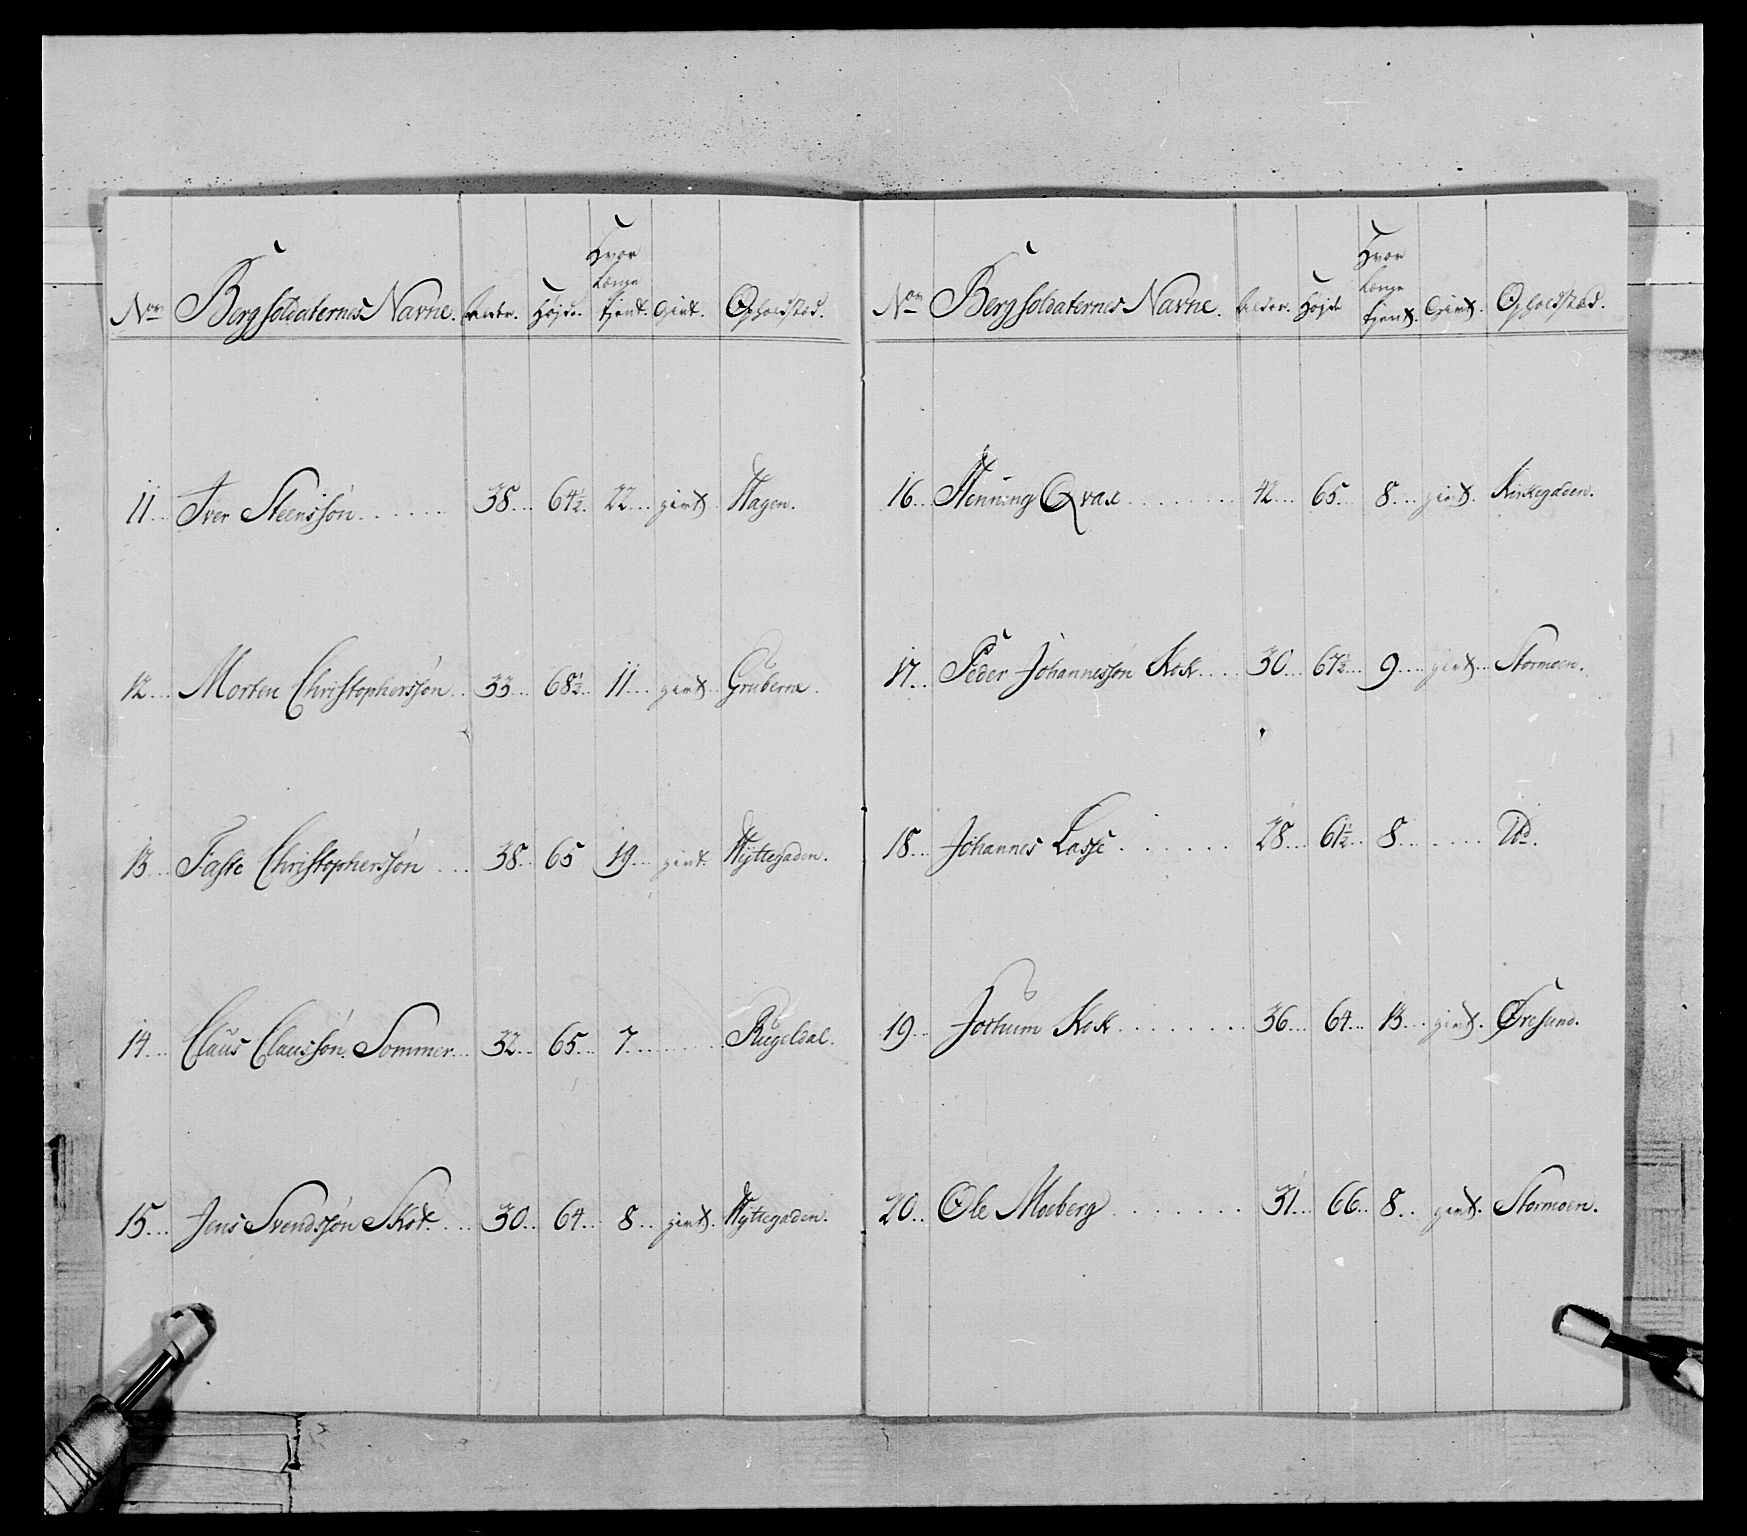 Nom Bergsoldaternes Navne. Alder. Højde. Hvor længe tjent. Givt. Opholdstæd.
11... Iver Steensøn....... 38... 64½. 22... givt. Hagen.
12... Morten Christophersøn.. 33... 68½.. 11... givt.. Gruberne.
13... Faste Christophersøn.... 38.. 65 19... givt. Hyttegaden.
14... Claus Clausøn. Sommer... 32... 65... 7........ Rugeldal.
15... Jens Svendsøn Skott... 30... 64... 8... givt. Hyttegaden.
Nom Bergsoldaternes Navne. Alder. Højde Hvor længe tjent. Givt. Opholdstæd.
16.. Henning Qval........ 42... 65.. 8... givt. Kirkegaden.
17... Peder Johannesøn Kok.... 30 67½.. 9... givt... Stormoen.
18... Johannes Lasse....... 28... 61½.. 8....... Do.
19... Jochum Kok........ 36... 64... 13... givt. Øresund.
20.. Ole Moeberg....... 31... 66.. 8.. givt. Stormoen.